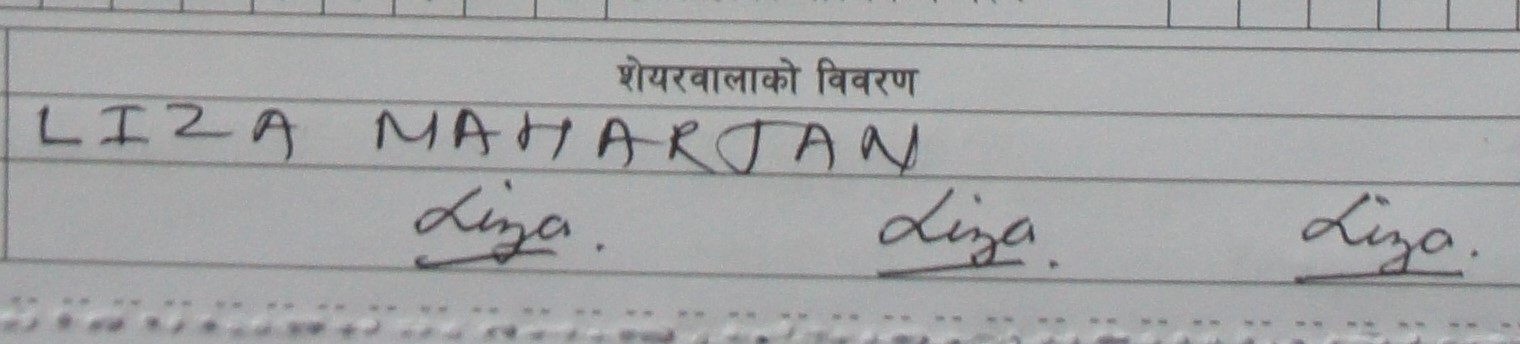 शेयरवालाको विवरण
LIZA MAHARJAN
Liza. Liza. Liza.